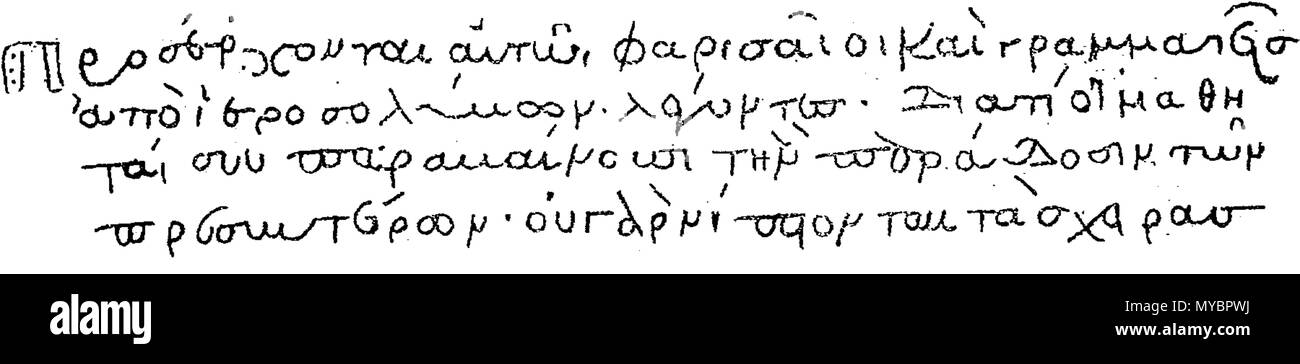 Προσέρχονται αὐτῶ, φαρισαῖοι καὶ γραμματεῖσ
ἀπὸ ἱεροσολύμων· λέγοντεσ· Διατί οἱ μαθη
ταί σου παραβαίνουσι τὴν παράδοσιν τῶν
πρεσβυτέρων· οὐ γὰρ νίπτονται τὰσ χεῖρασ
alamy
Image ID: MYBPWJ
www.alamy.com